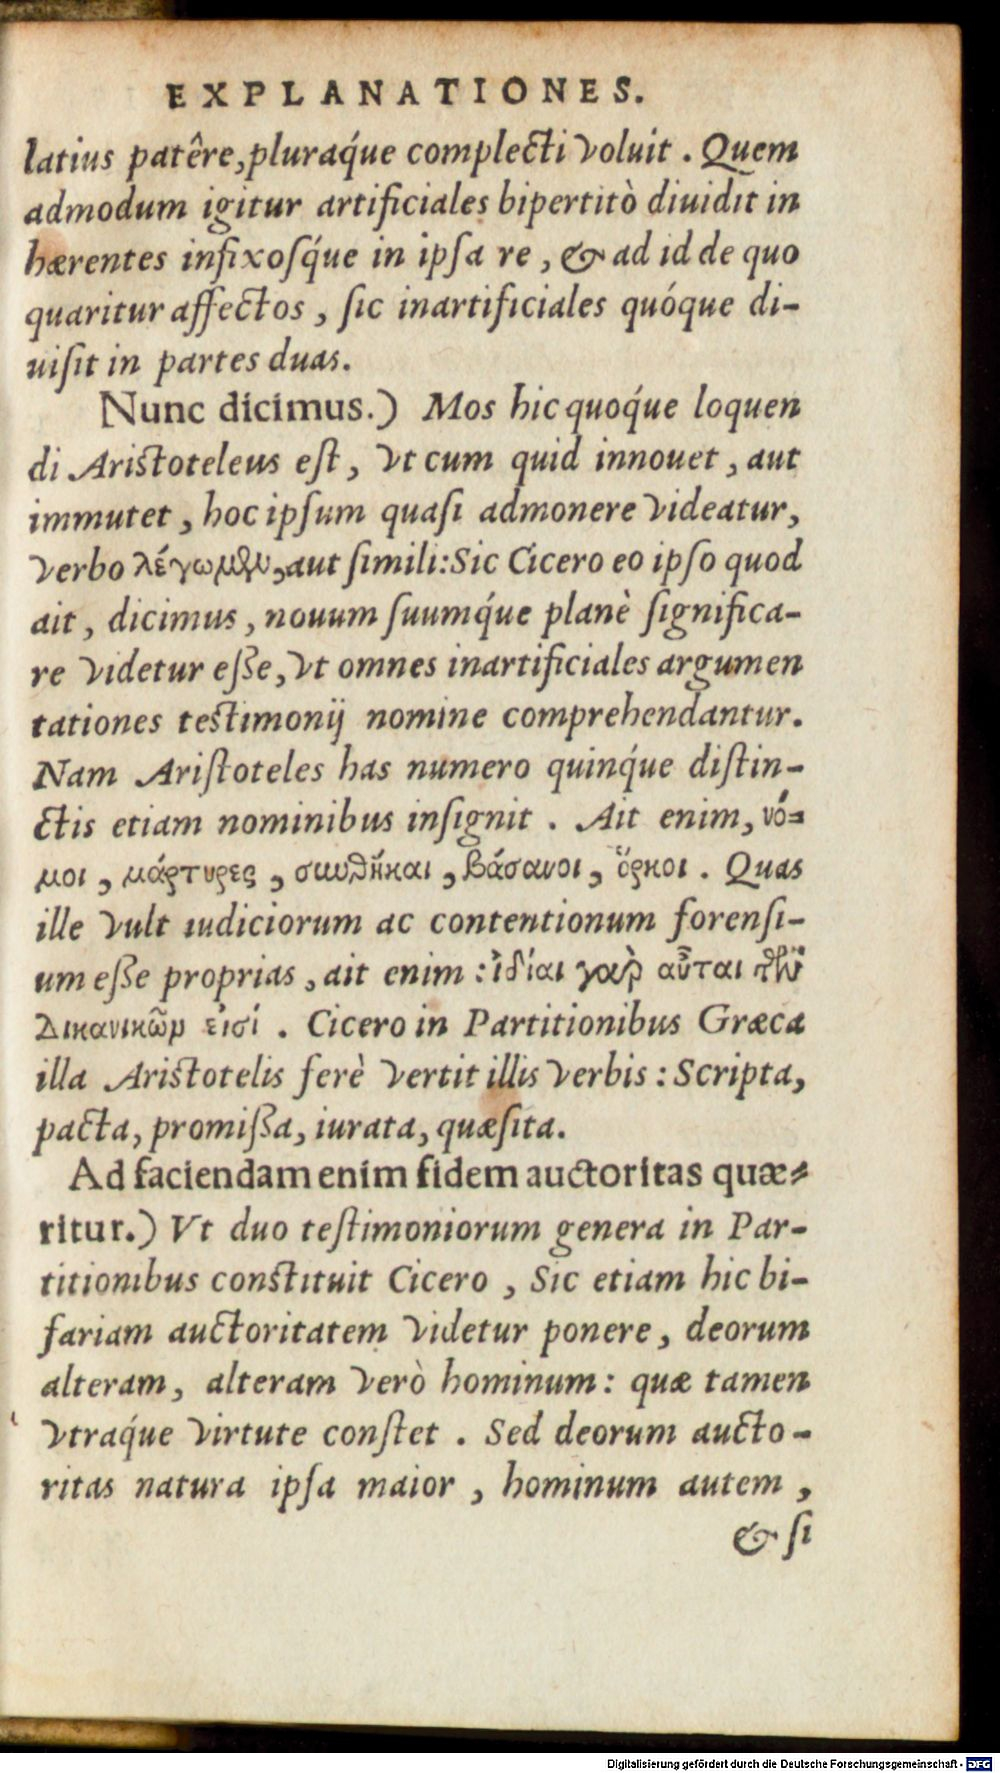 EXPLANATIONES.
latius patêre, pluraq́ue complecti voluit . Quem
admodum igitur artificiales bipertitò diuidit in
hærentes infixosq́ue in ipsa re , & ad id de quo
quaritur affectos , sic inartificiales quóque di-
uisit in partes duas.
Nunc dicimus.) Mos hic quoq́ue loquen
di Aristoteleus est , vt cum quid innouet , aut
immutet , hoc ipsum quasi admonere videatur,
verbo λέγωμῳ, aut simili: Sic Cicero eo ipso quod
ait , dicimus , nouum suumq́ue planè significa-
re videtur eße, vt omnes inartificiales argumen
tationes testimonij nomine comprehendantur.
Nam Aristoteles has numero quinq́ue distin-
ctis etiam nominibus insignit . Ait enim, νό-
μοι , μάρτυρες , συνθῆκαι , βάσανοι , ὅρκοι . Quas
ille vult iudiciorum ac contentionum forensi-
um eße proprias , ait enim : ἰδίαι γαρ̀ αὗται τῶν
Δικανικῶμ εἰσί . Cicero in Partitionibus Græca
illa Aristotelis ferè vertit illis verbis : Scripta,
pacta, promißa, iurata, quæsita.
Ad faciendam enim fidem auctoritas quæ-
ritur.) Vt duo testimoniorum genera in Par-
titionibus constituit Cicero , Sic etiam hic bi-
fariam auctoritatem videtur ponere, deorum
alteram, alteram verò hominum: quæ tamen
vtraq́ue virtute constet . Sed deorum aucto-
ritas natura ipsa maior , hominum autem ,
& si
Digitalisierung gefördert durch die Deutsche Forschungsgemeinschaft - DFG